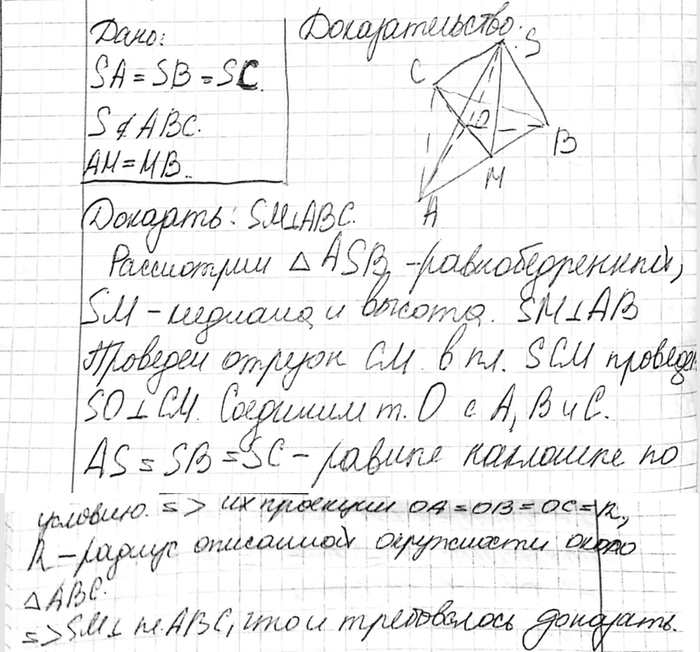 Дано:
SA = SB = SC.
S ∉ ABC.
AM = MB.
Доказательство.
S
C
O
B
M
A
Доказать: SM⊥ABC.
Рассмотрим △ ASB -равнобедренный,
SM - медиана и высота. SM⊥AB
Проведем отрезок CM. в пл. SCM проведем
SO⊥CM. Соединим т. O с A, B и C.
AS = SB = SC - равные наклонные по
условию. => их проекции OA = OB = OC = R,
R - радиус описанной окружности около
△ABC.
=> SM⊥ пл. ABC, что и требовалось доказать.